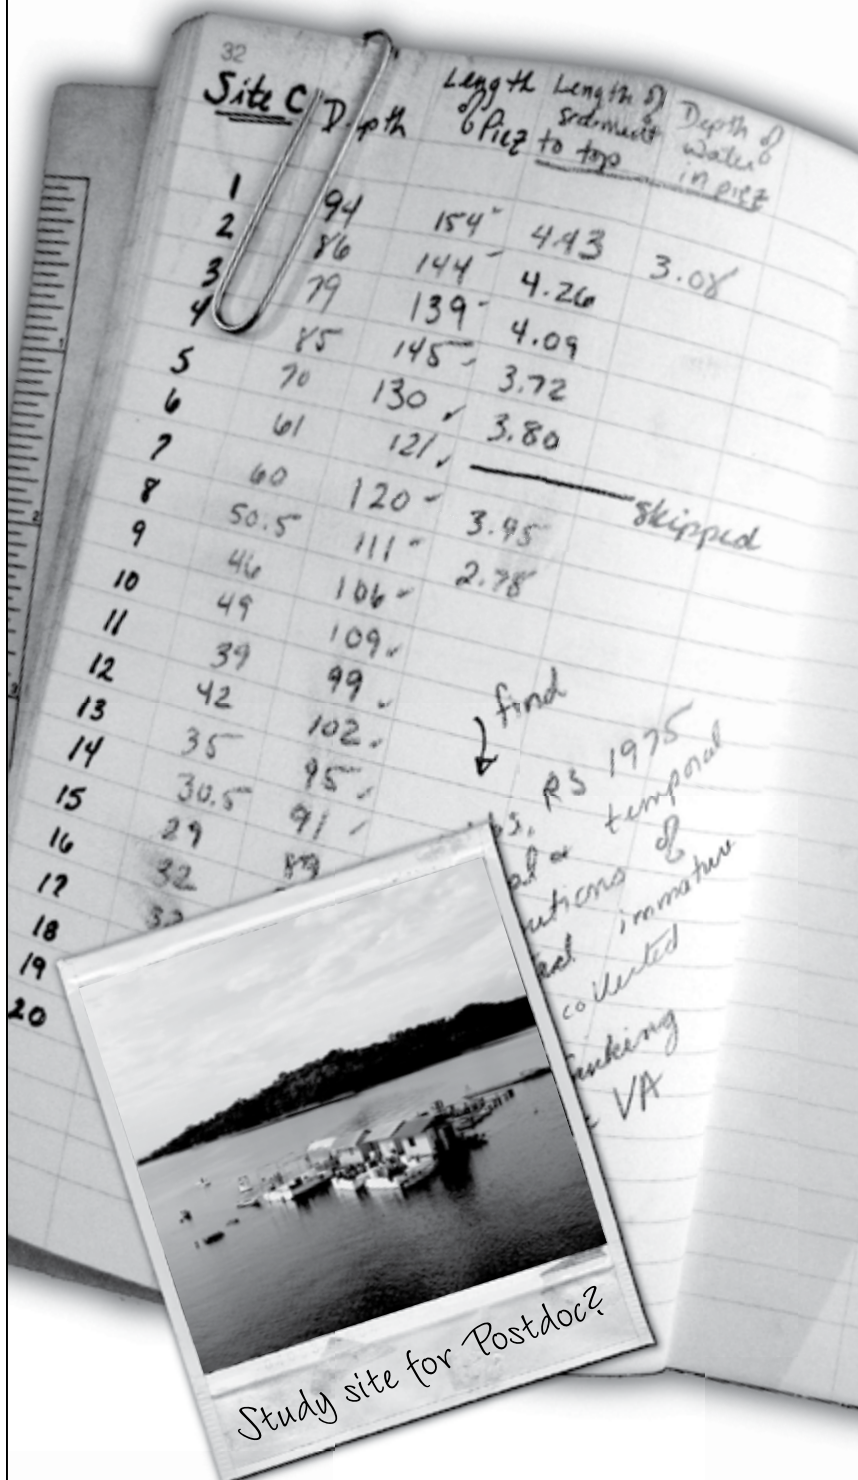 32
Site C Depth Length of Piez Length of sediment to top Depth of water in piez
1 94 154 4.43 3.08
2 86 144 4.26
3 79 139 4.09
4 85 145 3.72
5 70 130 3.80
6 61 121 skipped
7 60 120 3.95
8 50.5 111 2.78
9 46 106
10 49 109
11 39 99
12 42 102
13 35 95
14 30.5 91
15 29 89
16 32
17
18
19
20
find
RS 1975
temporal
of
immature
collected
VA
Study site for Postdoc?
1
2
3